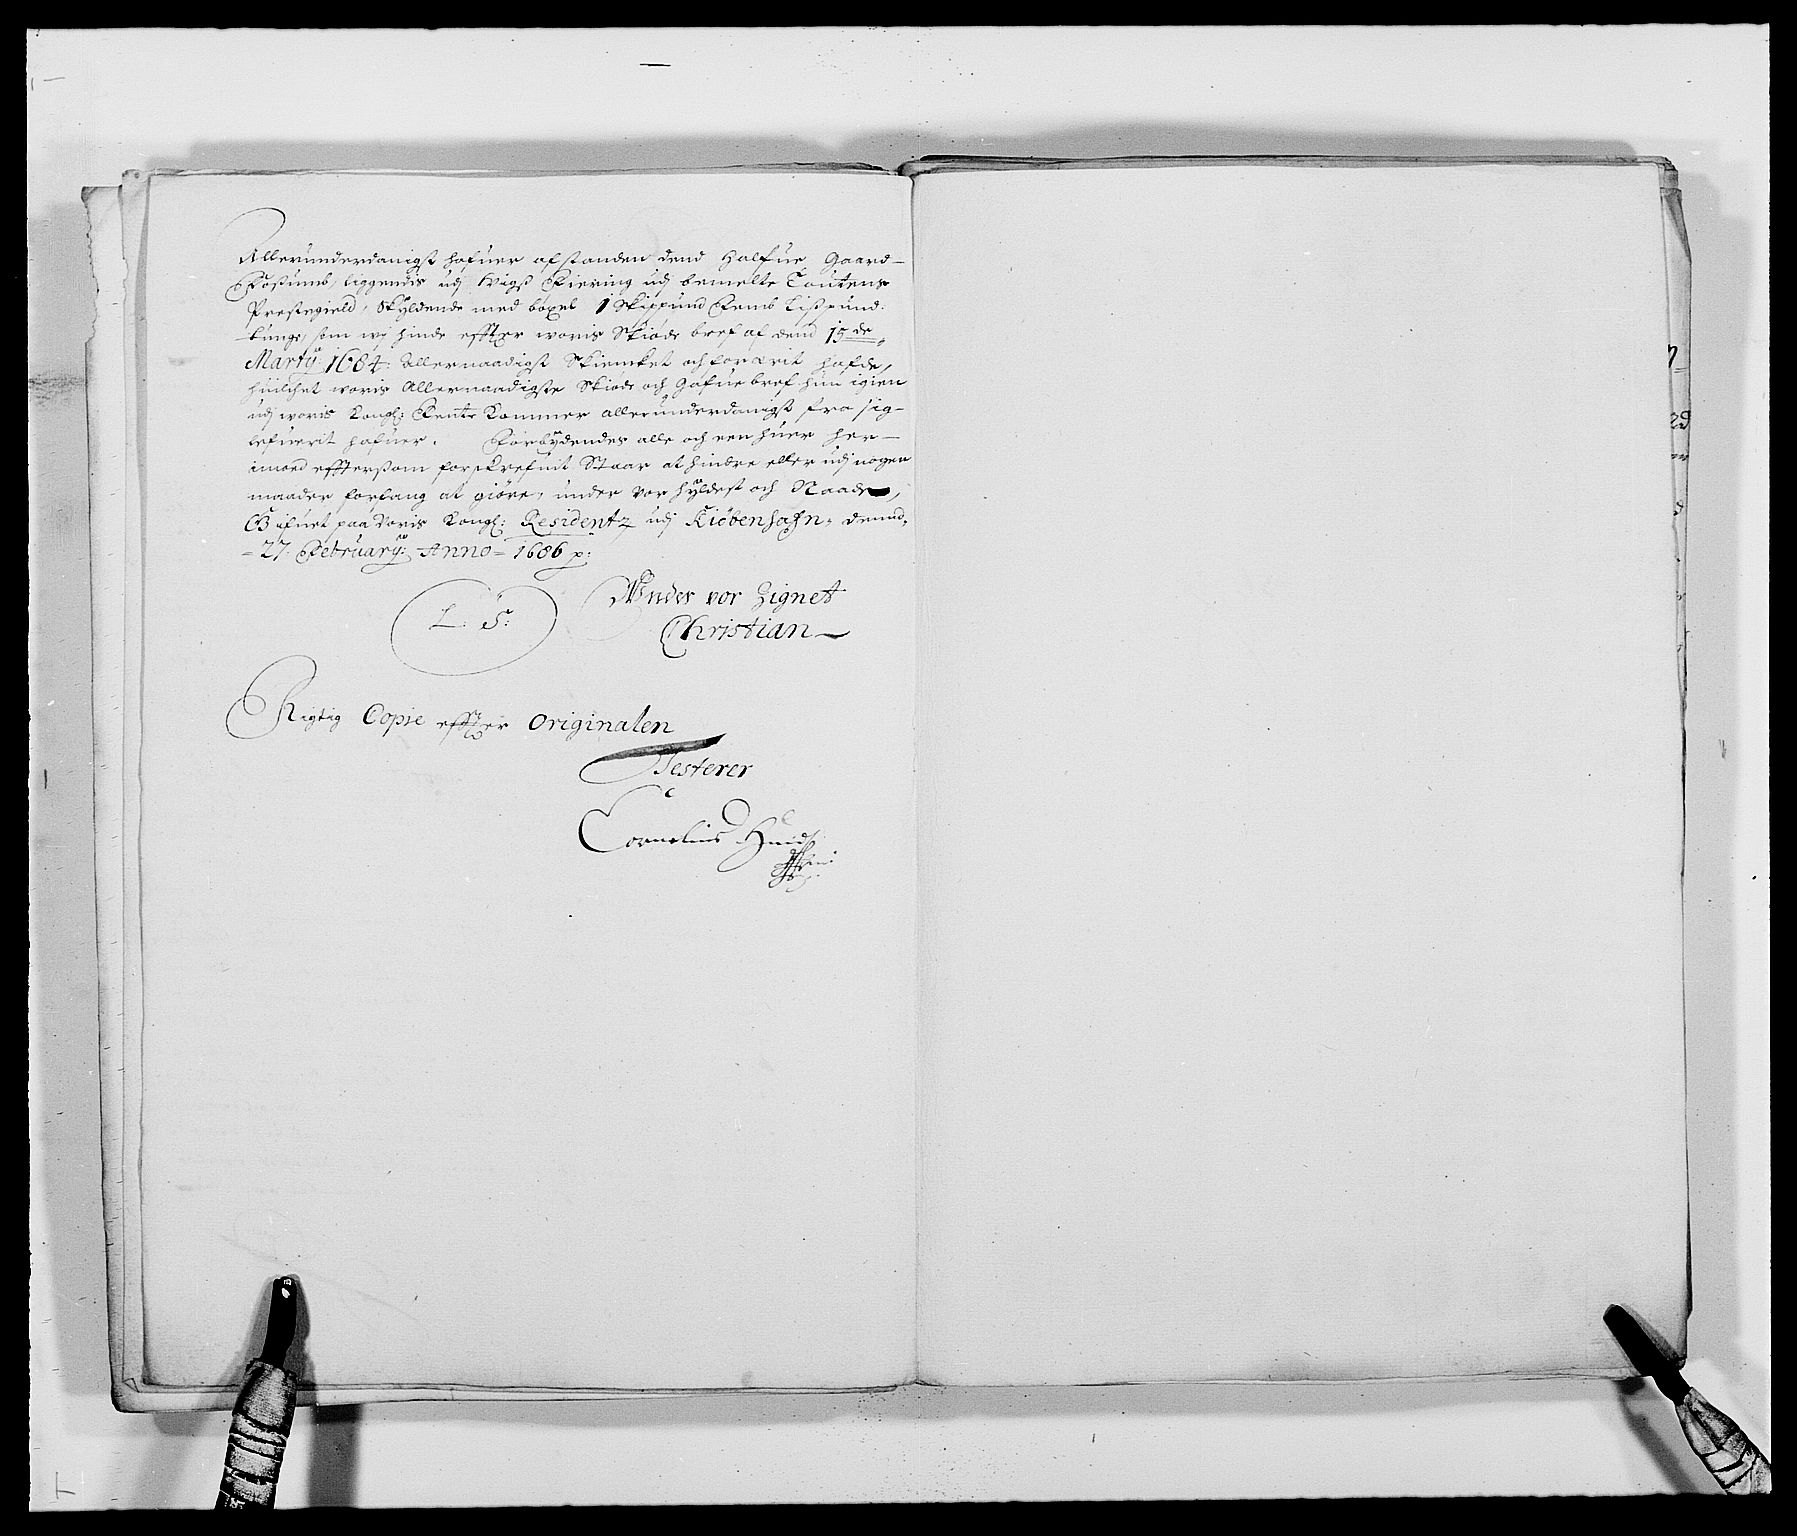 Allerunderdanigst hafuer afstanden dend Halfue Gaard
Roßumb, liggendis udj Wigß Fiering udj bemelte Toutens
Prestegield, Skyldende med boxel 1 Skippund Femb Lißpund
tunge, som wj hinde effter woris Skiøde bref af dend 15de
Martij 1684: Allernaadigst Skiencket och foræerit hafde,
huilchet woris Allernaadigste Skiøde och Gafue bref hun igien
udj woris Kongl: Rente Kammer allerunderdanigst fra sig
lefuerit hafuer. Forbydendes alle och een huer her-
imoed effterßom forskrefuit Staar at hindre eller udj nogen
maader forfang at giøre, under vor hyldest och Naade,
Gifuet paa Voris Kongl: Residentz udj Kiøbenhafn, dennd,
27. February: Anno 1686 p:
L: S: Under vor Zignet
Christian
Rigtig Copie effter Originalen
Testerer
Cornelius Huid